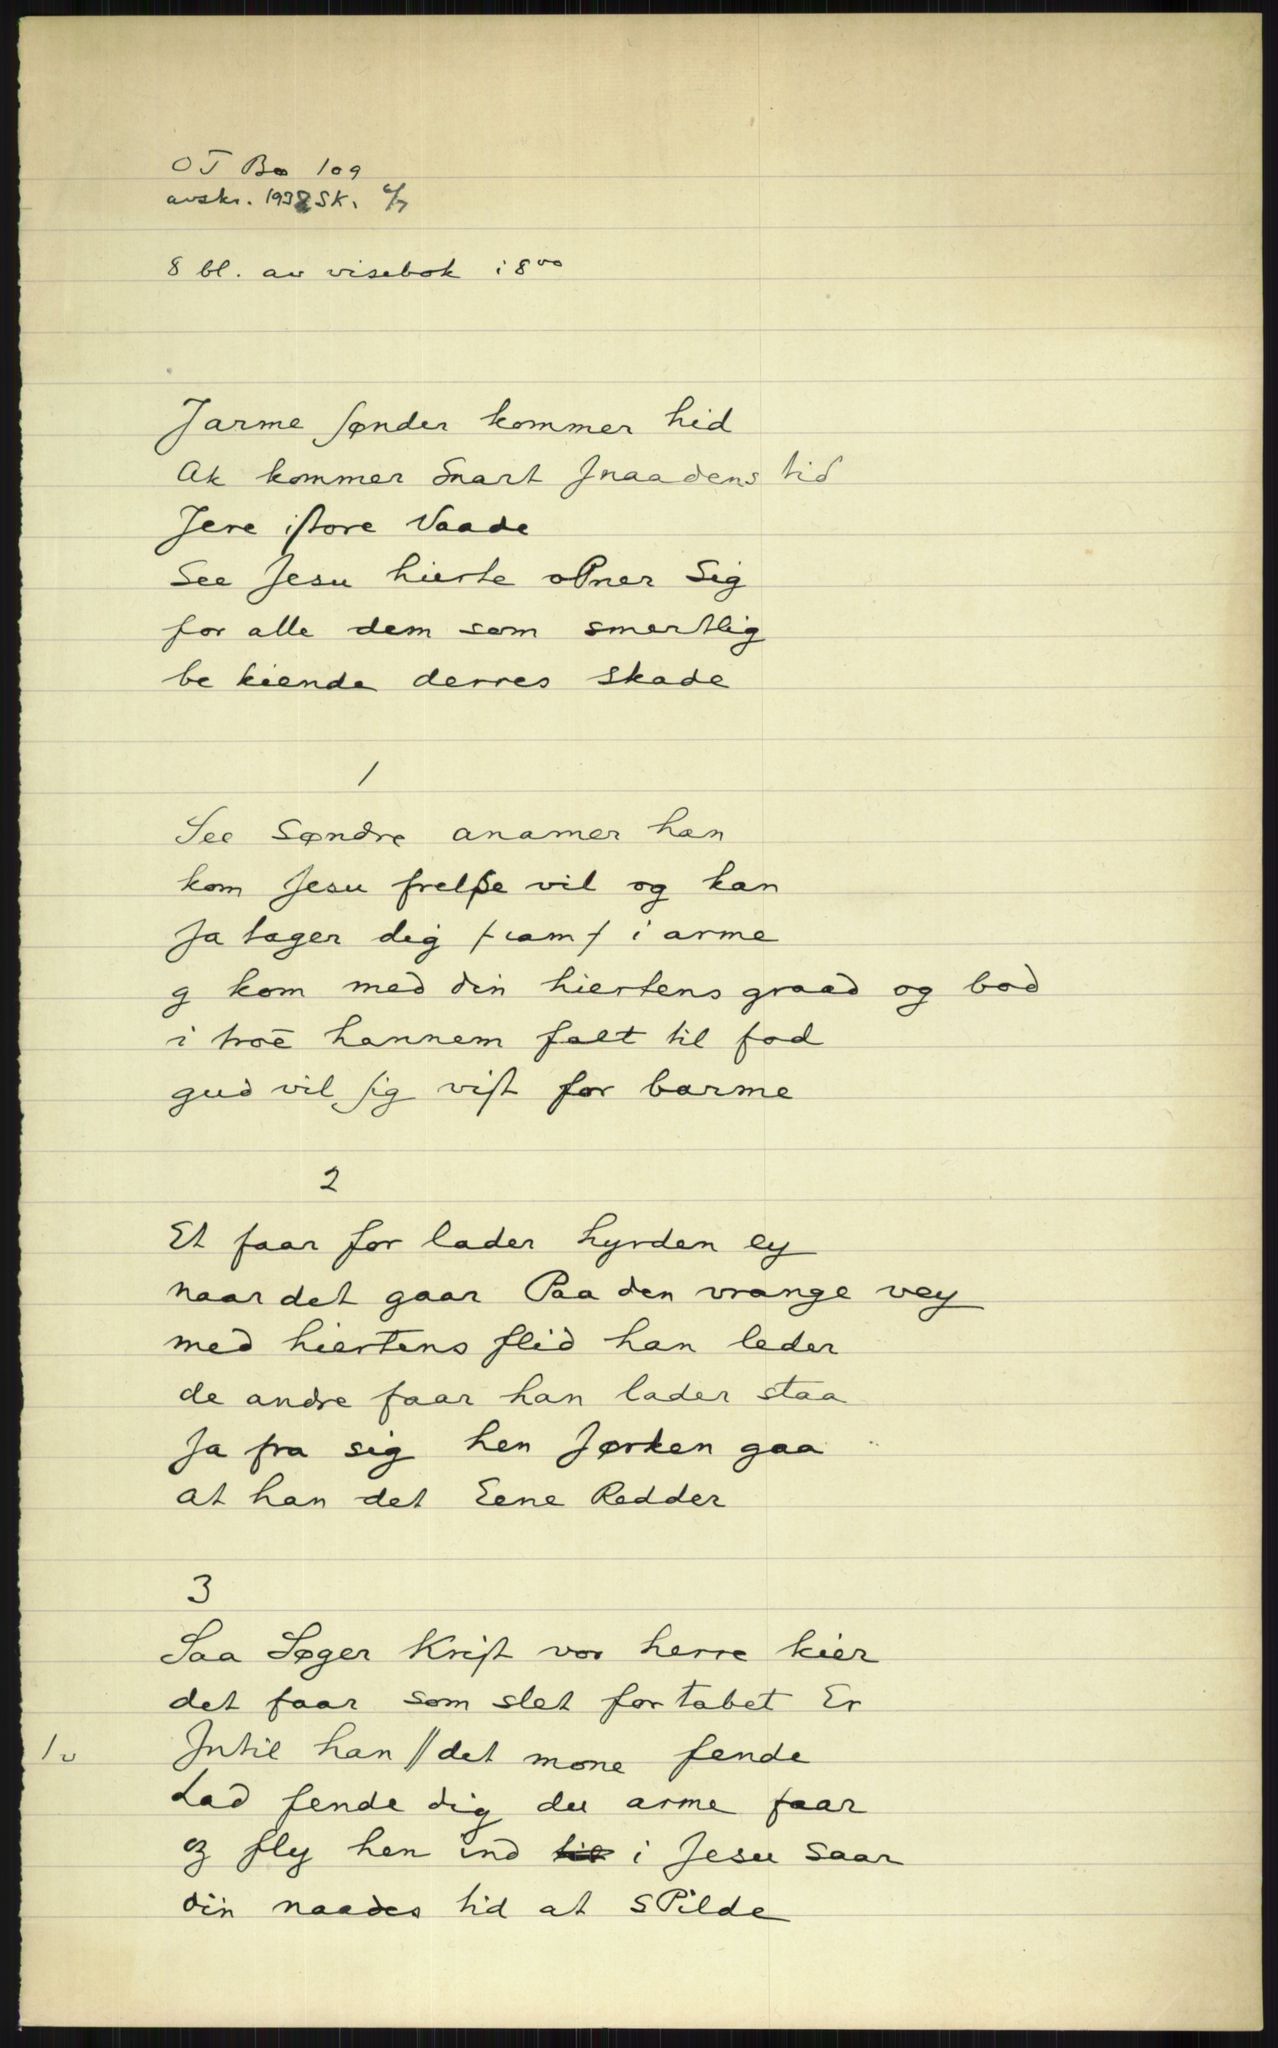 OT Bø 109
avskr. 1938 SK.
8 bl. av visebok i 8vo
Jarme ſønder kommer hid
Ak kommer Snart Jnaadens tid
Jere iſtore Vaade
See Jesu hierte oPner Sig
for alle dem som smertlig
be kiende derres skade
1
See Søndre anamer han
kom Jesu frelſe vil og kan
Ja tager dig i arme
g kom med din hiertens graad og bod
i troē hannem falt til fod
gud vil ſig viſt for barme
2
Et faar for lader hyrden ey
naar det gaar Paa den vrange vey
med hiertens flid han leder
de andre faar han lader staa
Ja fra sig hen Jørken gaa
at han det Eene Redder
3
Saa Søger Kriſt vor herre kier
det faar som slet for tabet Er
1v Jntil han || det mone fende
Lad fende dig du arme faar
og fly hen ind til i Jesu saar
din naades tid at sPilde